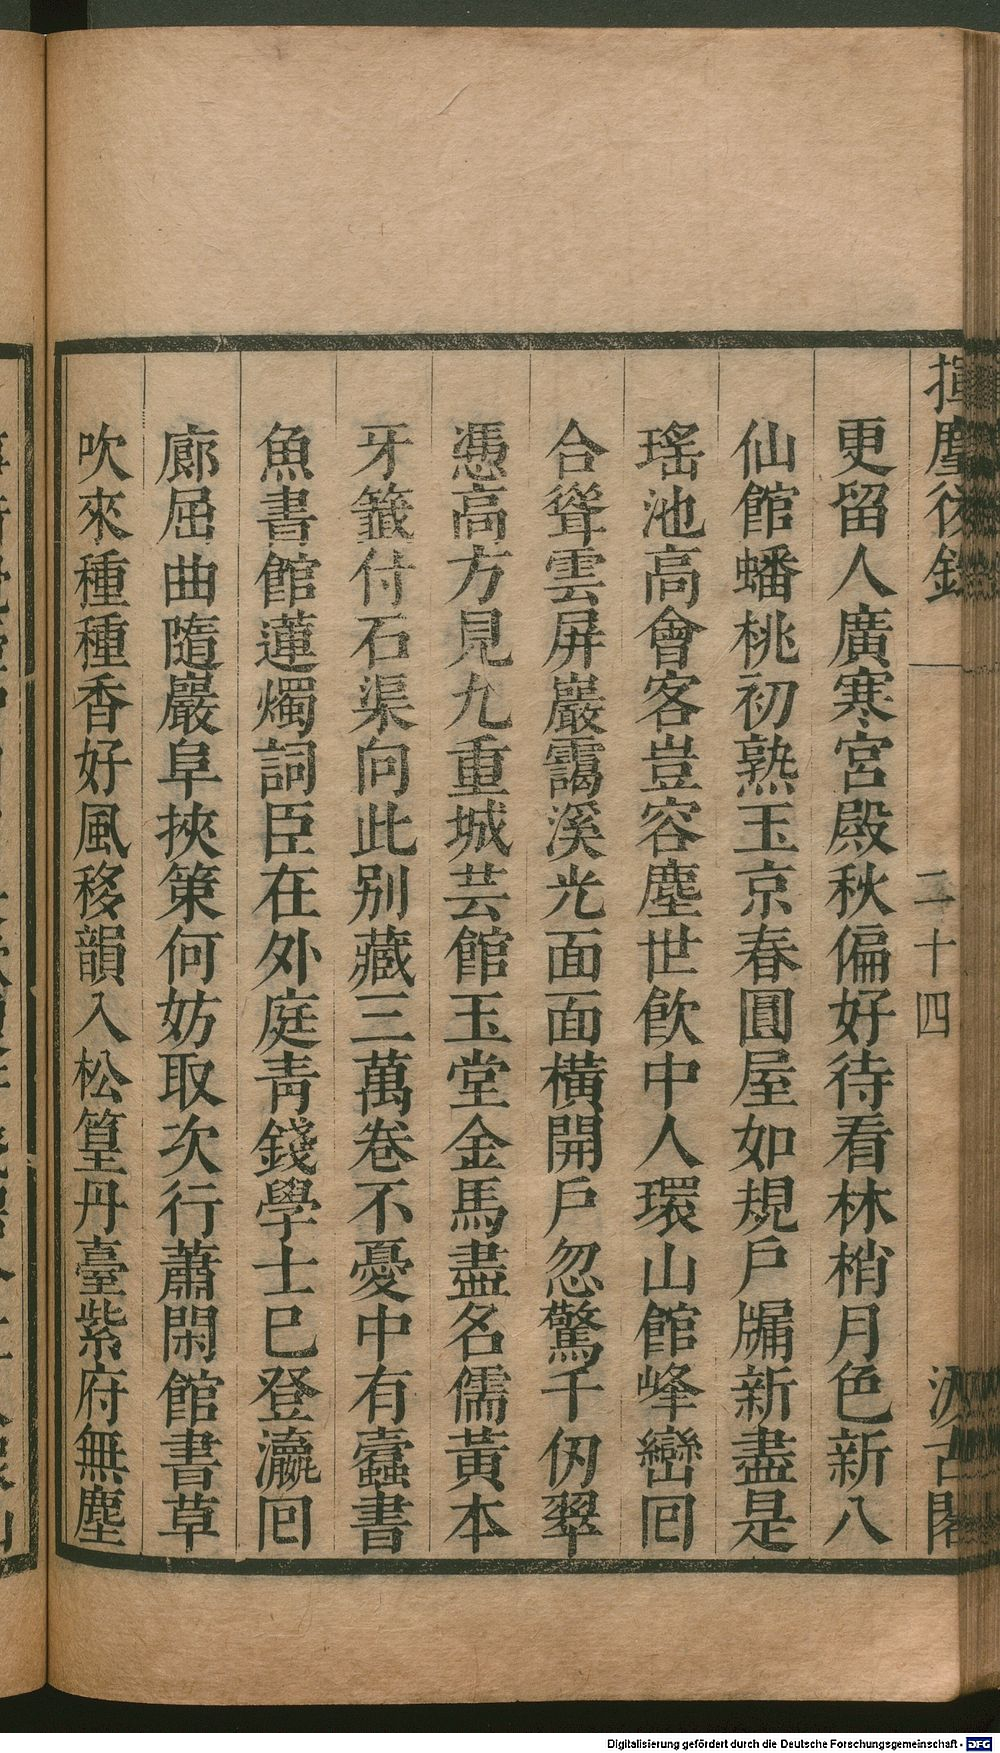 揮麈後錄
二十四
汲古閣
更留人廣寒宮殿秋偏好待看林梢月色新八
仙館蟠桃初熟玉京春圓屋如規戶牖新盡是
瑤池高會客豈容塵世飲中人環山館峰巒回
合聳雲屏巖靄溪光面面橫開戶忽驚千仞翠
憑高方見九重城芸館玉堂金馬盡名儒黃本
牙籤付石渠向此別藏三萬卷不憂中有蠹書
魚書館蓮燭詞臣在外庭靑錢學士已登瀛回
廊屈曲隨巖阜挾策何妨取次行蕭閑館書草
吹來種種香好風移韻入松篁丹臺紫府無塵
Digitalisierung gefördert durch die Deutsche Forschungsgemeinschaft - DFG